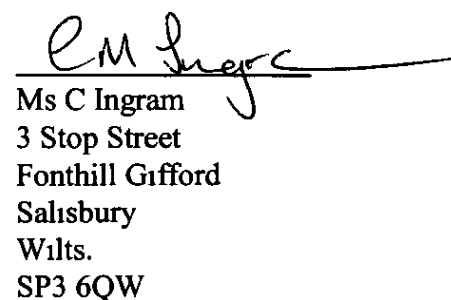 CM Ingra
Ms C Ingram
3 Stop Street
Fonthill Gifford
Salisbury
Wilts.
SP3 6QW